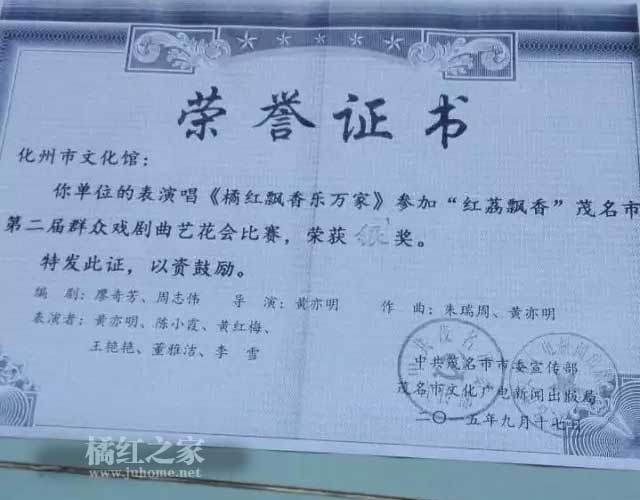 荣誉证书
化州市文化馆：
你单位的表演唱《橘红飘香乐万家》参加“红荔飘香”茂名市
第二届群众戏剧曲艺花会比赛，荣获银奖。
特发此证，以资鼓励。
编 剧：廖奇芳、周志伟 导 演：黄亦明 作 曲：朱瑞周、黄亦明
表演者：黄亦明、陈小霞、黄红梅、
王艳艳、董雅洁、李 雪
中共茂名市市委宣传部
茂名市文化广电新闻出版局
二〇一五年九月十七日
橘红之家
www.juhome.net